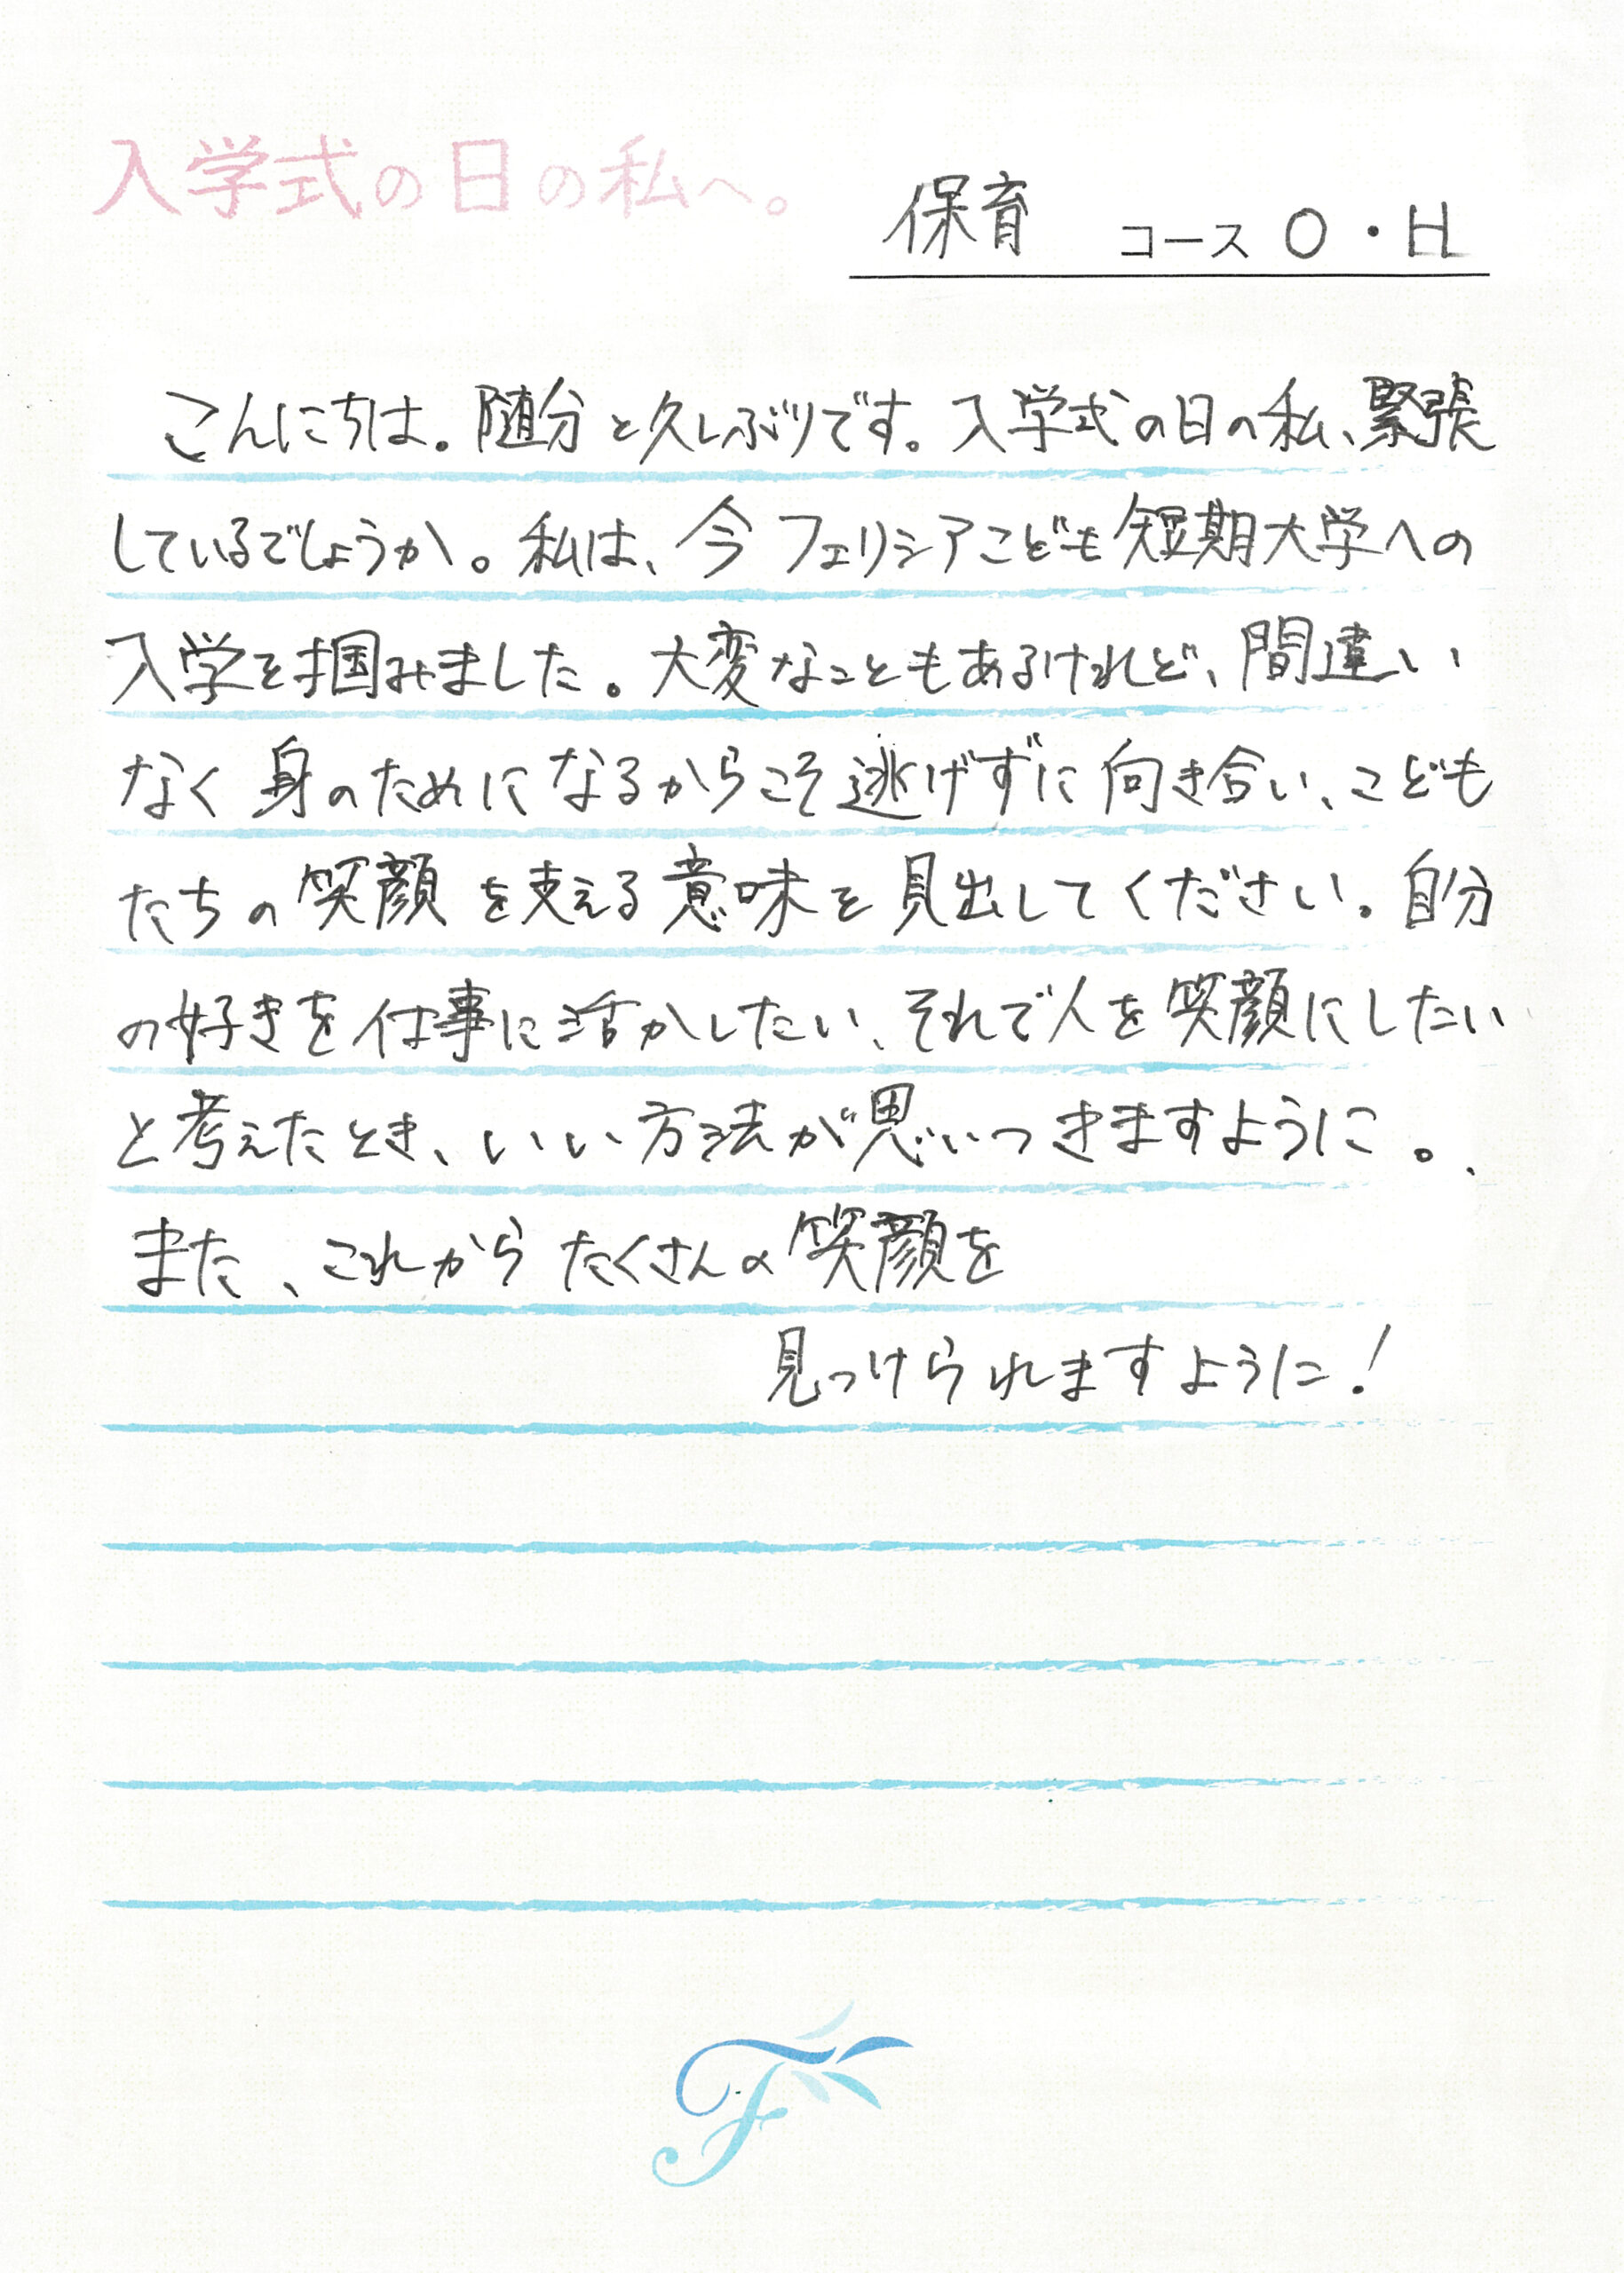 入学式の日の私へ。
保育 コース O・H
こんにちは。随分と久しぶりです。入学式の日の私、緊張
しているでしょうか。私は、今フェリシアこども短期大学への
入学を掴みました。大変なこともあるけれど、間違い
なく身のためになるからこそ逃げずに向き合い、こども
たちの笑顔を支える意味を見出してください。自分
の好きを仕事に活かしたい、それで人を笑顔にしたい
と考えたとき、いい方法が思いつきますように。
また、これからたくさんの笑顔を
見つけられますように!
F